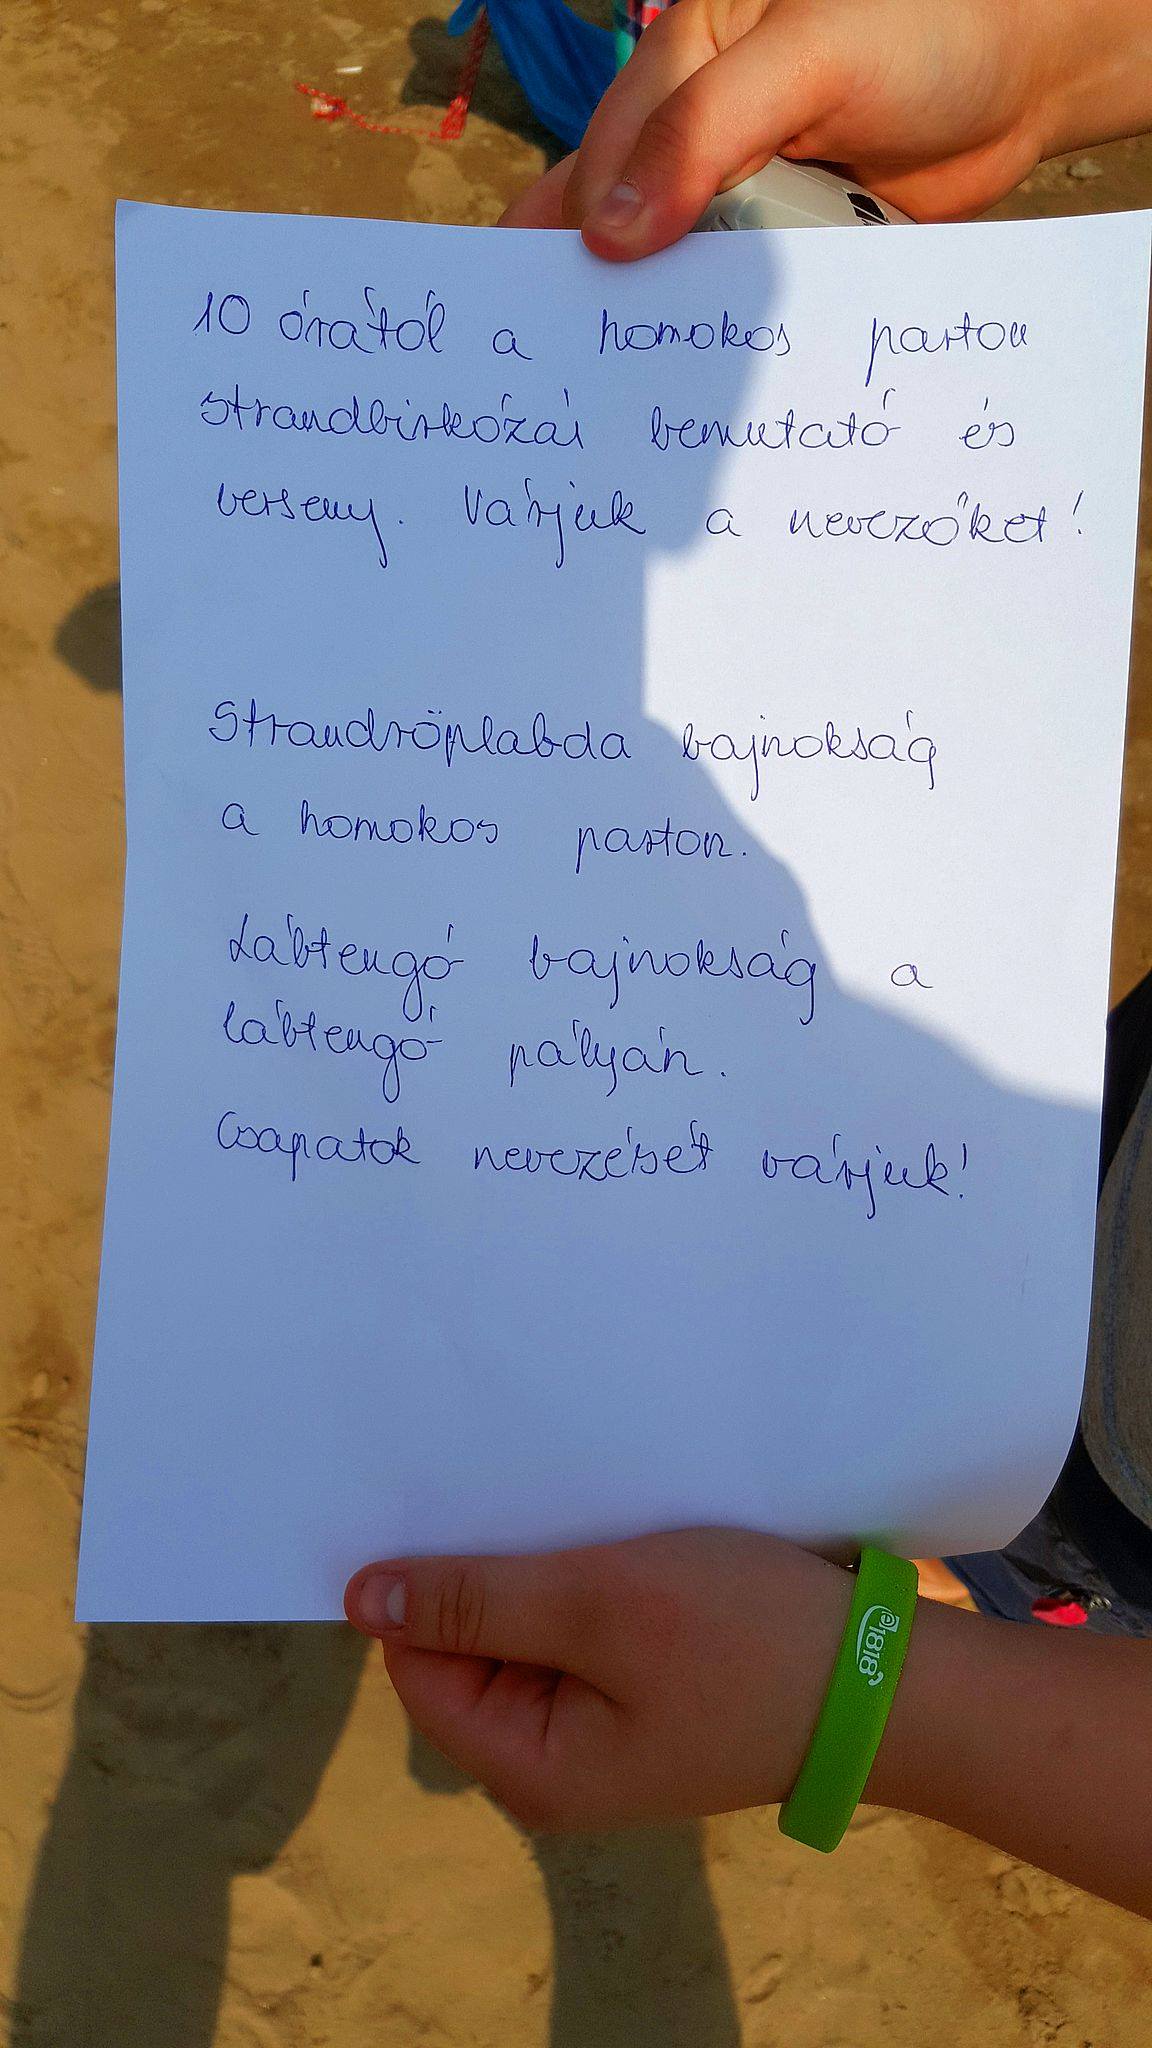 10 órától a homokos parton
strandbirkózás bemutató és
verseny. Várjuk a nevezőket!
Strandröplabda bajnokság
a homokos parton.
Lábtengó bajnokság a
lábtengó pályán.
Csapatok nevezését várjuk!
e1818